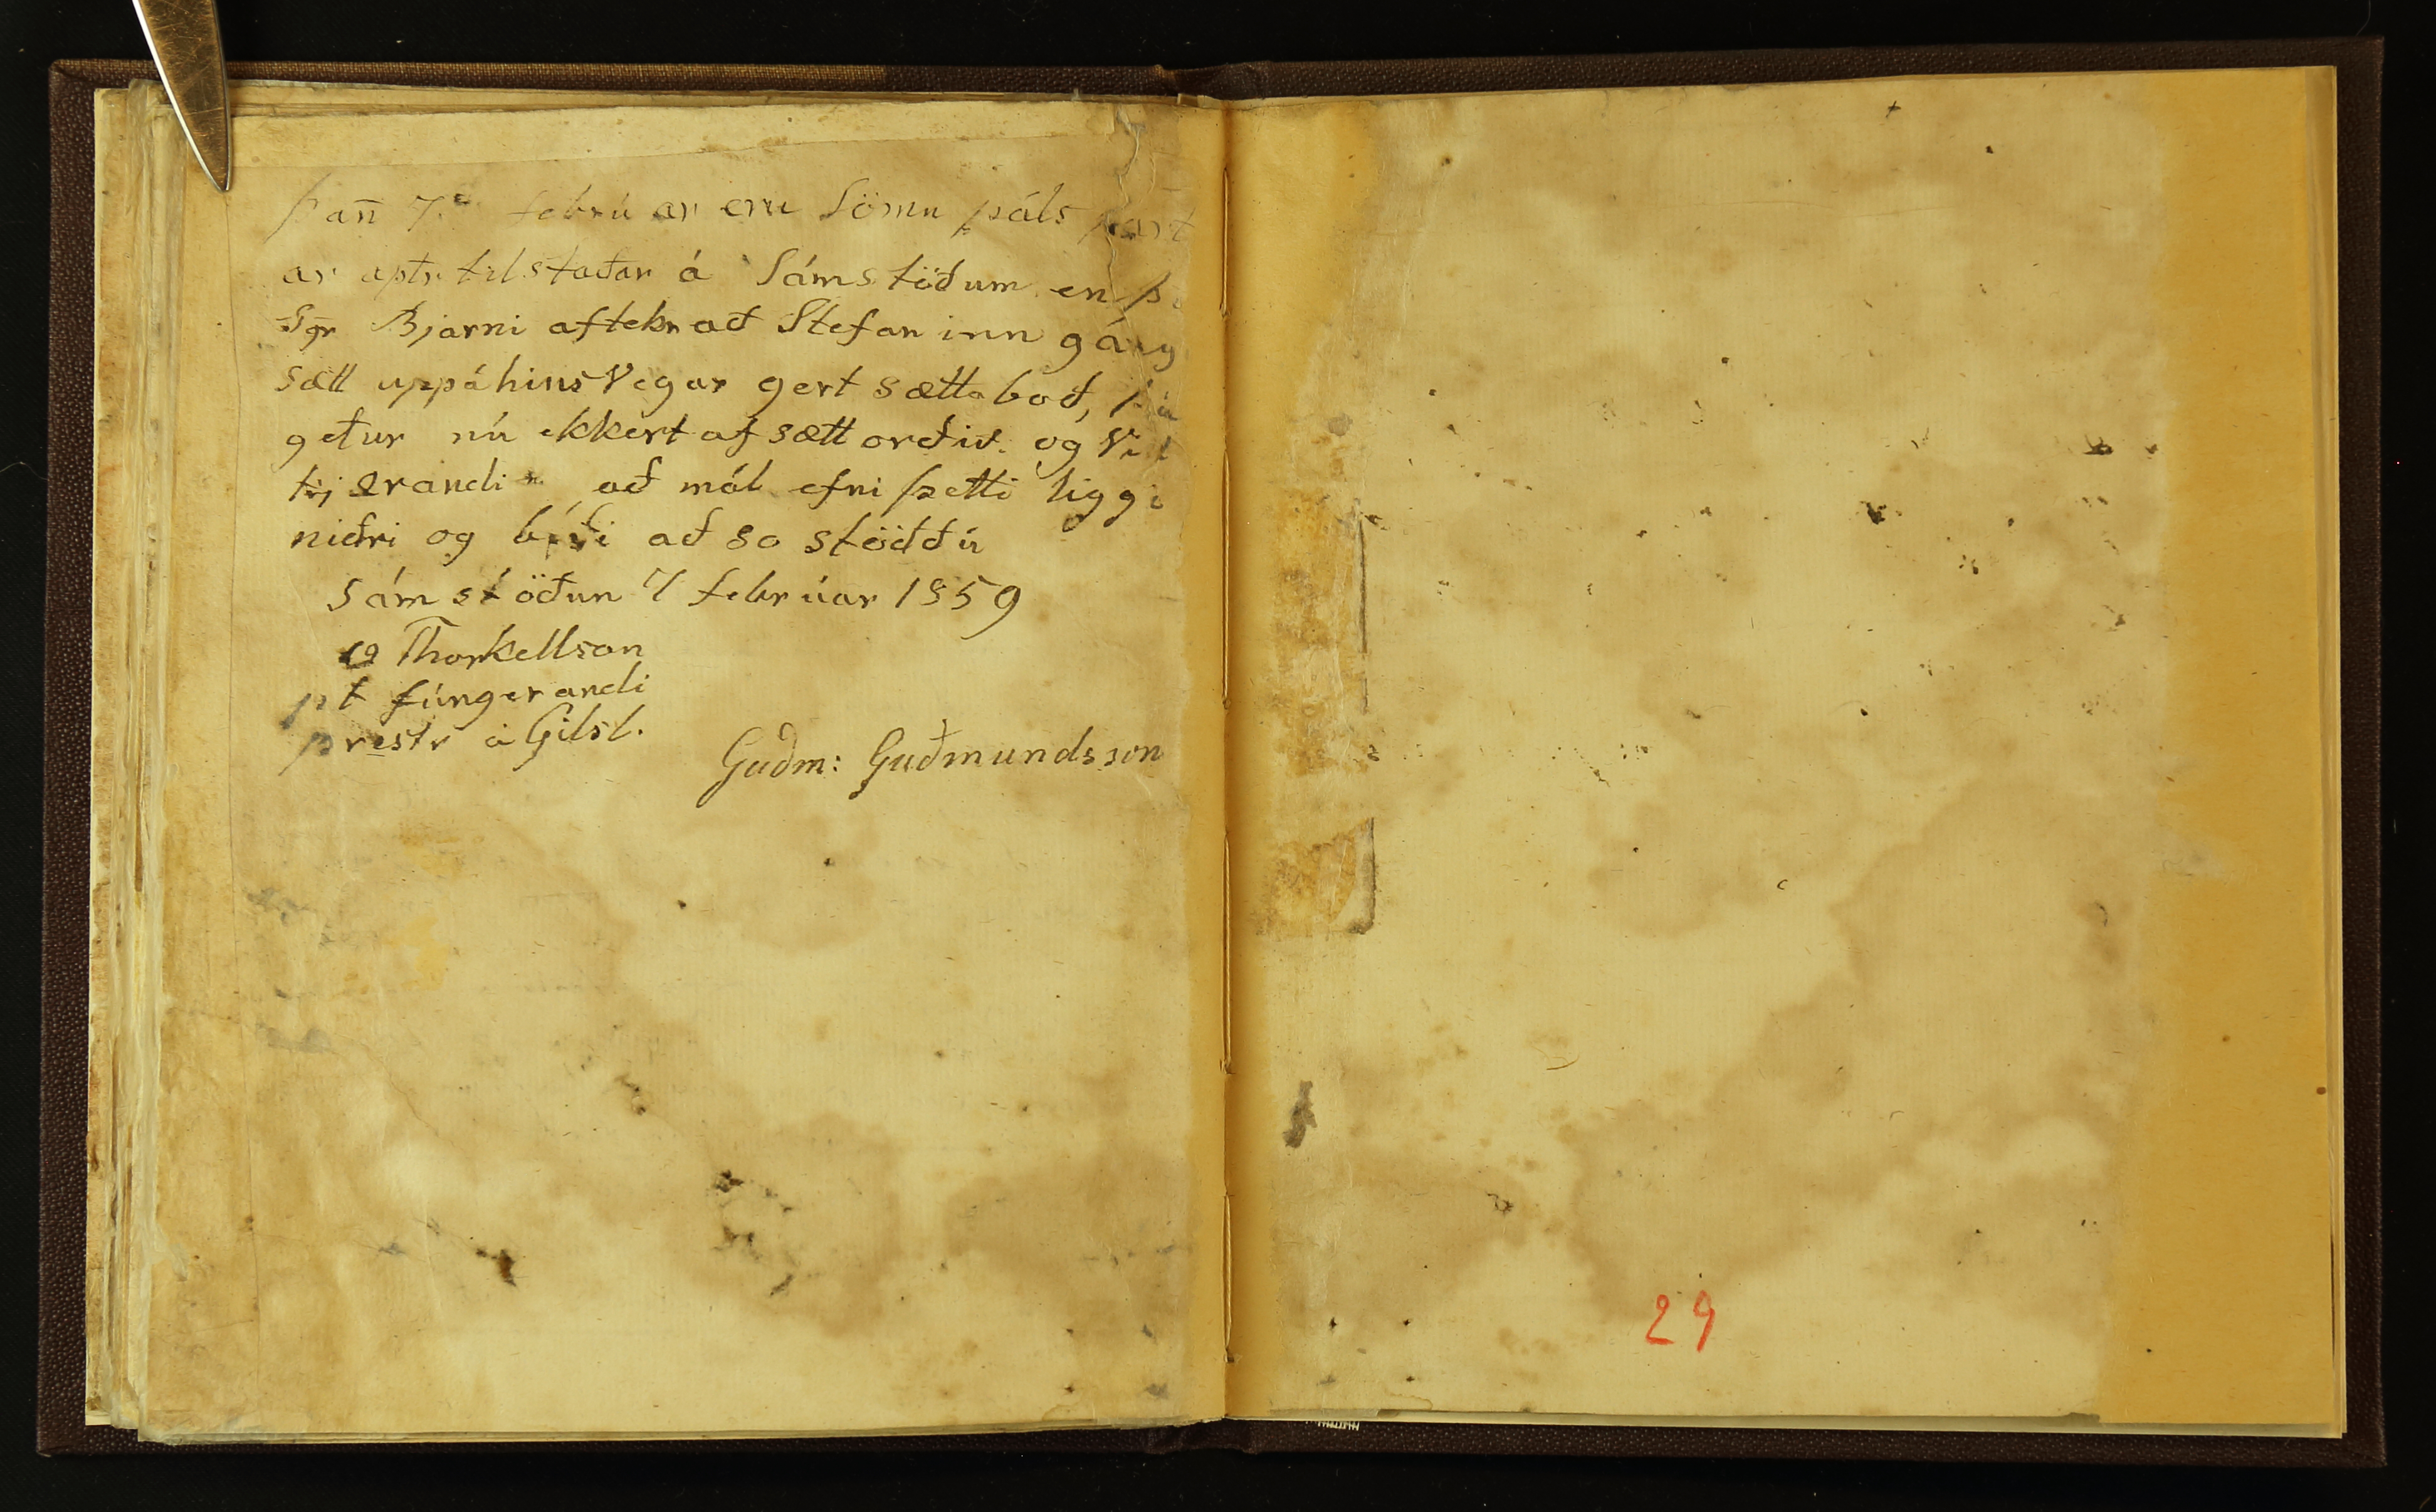 Þan̄ 7da febrúar eru sömu páls part
ar aptr tilstaðar á Sámstöðum en þi
Sgr Bjarni aftekr að Stefan inn gáng
sætt uppáhinsvegar gert sættaboð, þá
getur nú ekkert af sætt orðið og vil
kjærandi að mál efni þetti liggi
niðri og bíði að so stöddu
Sámstöðun 7 febrúar 1859
Thorkellson
pt fúngerandi
prestr á Gilsb.
Guðm: Guðmundsson
29